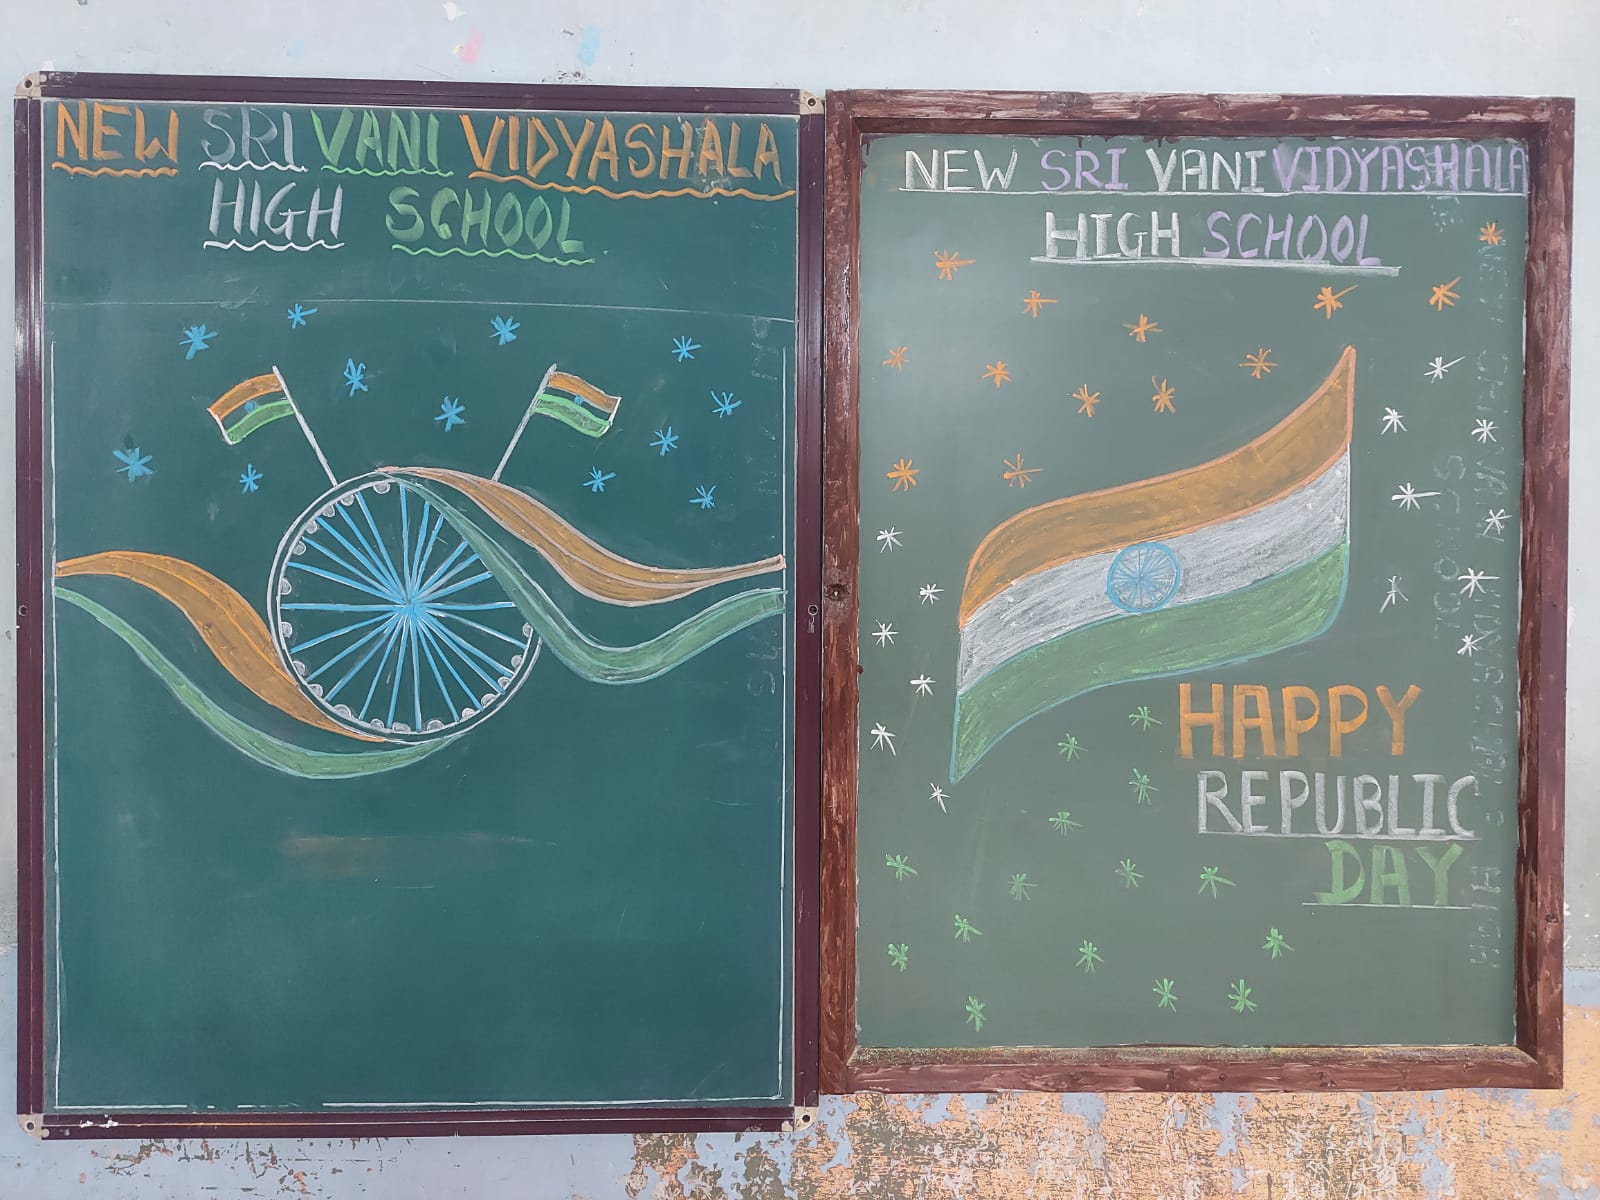 NEW SRI VANI VIDYASHALA
HIGH SCHOOL
NEW SRI VANI VIDYASHALA
HIGH SCHOOL
HAPPY
REPUBLIC
DAY